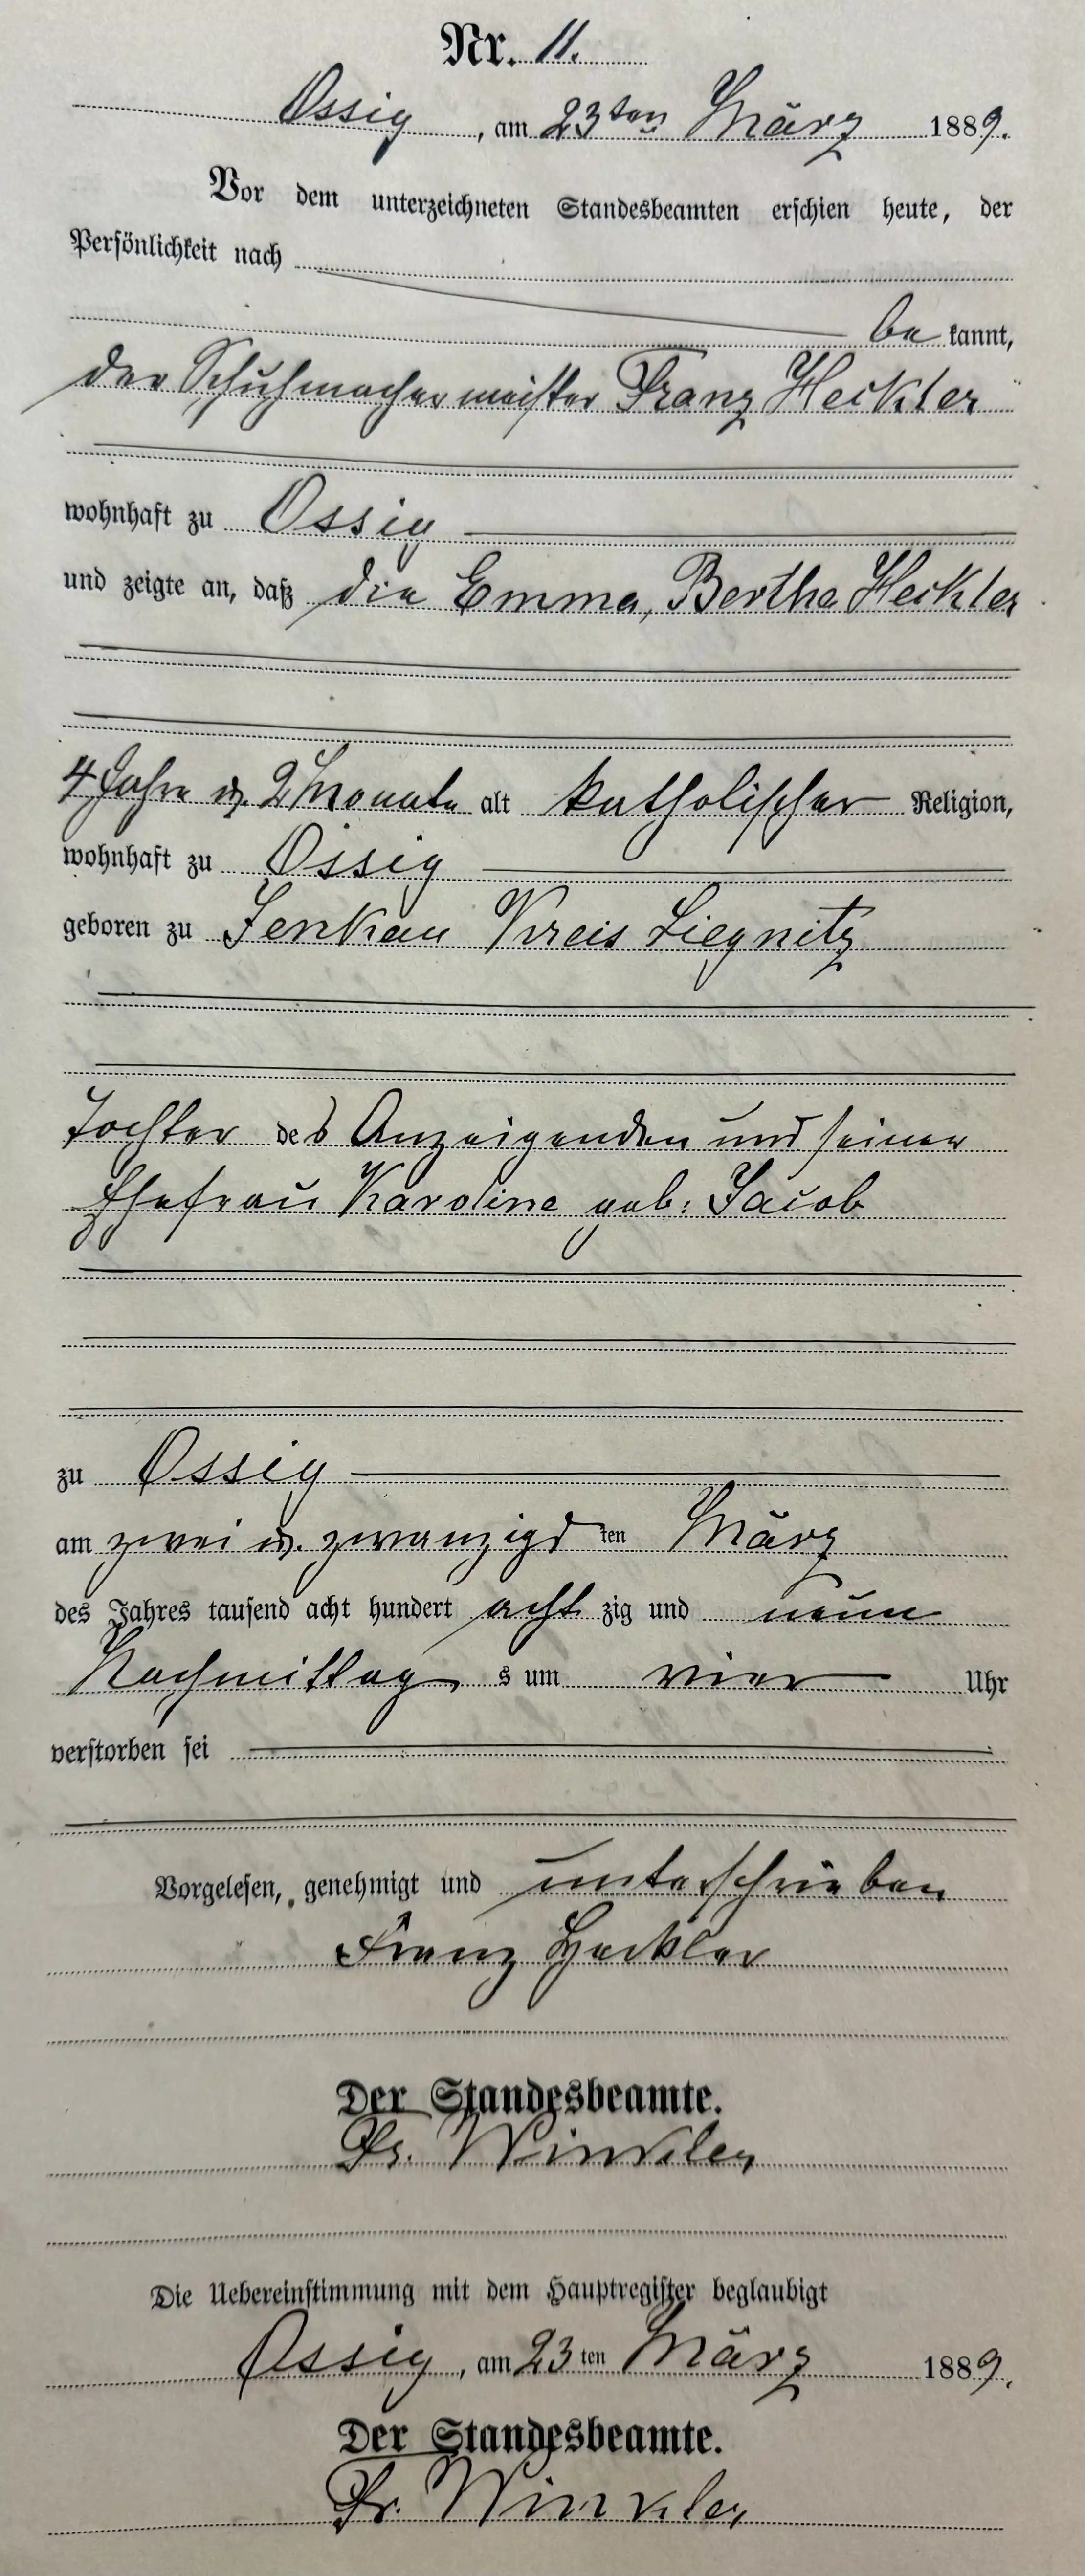 Nr. 11.
Ossig, am 23ten März 1889.
Vor dem unterzeichneten Standesbeamten erschien heute, der
Persönlichkeit nach
bekannt,
der Schuhmachermeister Franz Heckler
wohnhaft zu Ossig
und zeigte an, daß die Emma, Bertha Heckler
4 Jahre u. 2 Monate alt katholischer Religion,
wohnhaft zu Ossig
geboren zu Jenkau Kreis Liegnitz
Tochter des Anzeigenden und seiner
Ehefrau Karoline geb: Jacob
zu Ossig
am zwei u. zwanzigsten März
des Jahres tausend acht hundert achtzig und neun
Nachmittags um vier Uhr
verstorben sei
Vorgelesen, genehmigt und unterschrieben
Franz Heckler
Der Standesbeamte.
Fr. Winkler
Die Uebereinstimmung mit dem Hauptregister beglaubigt
Ossig, am 23ten März 1889.
Der Standesbeamte.
Fr. Winkler